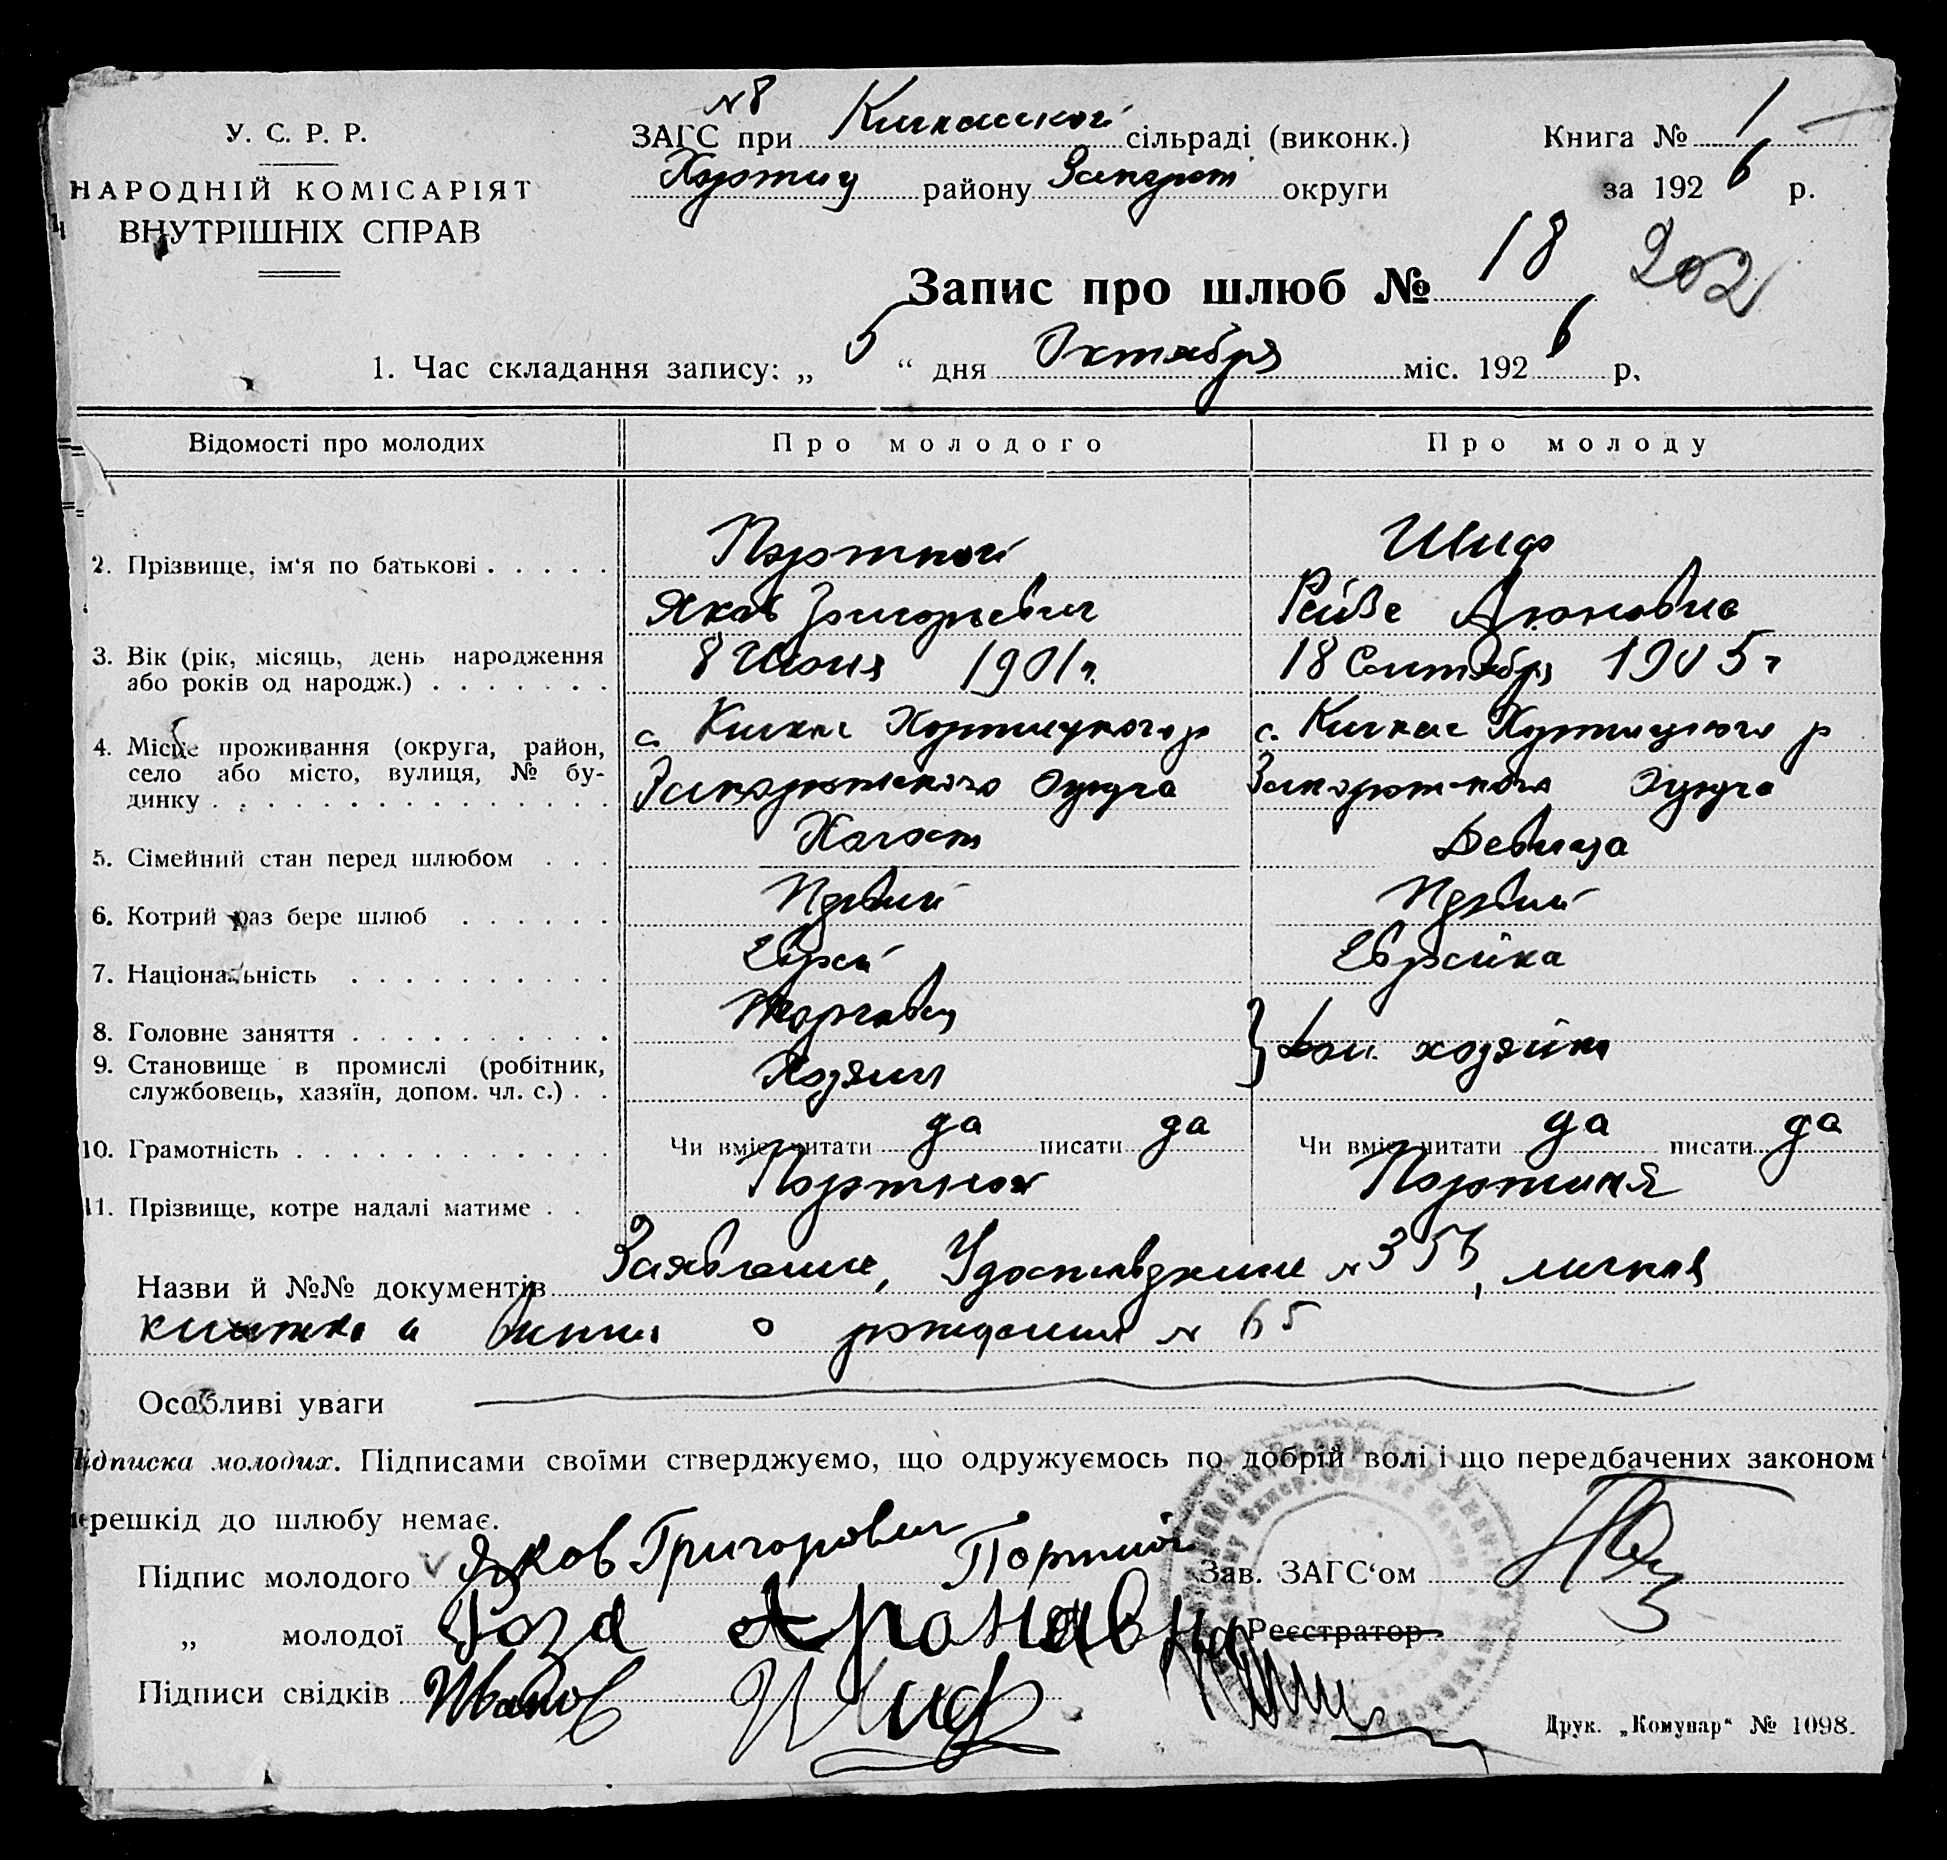 № 8
У. С. Р. Р.
ЗАГС при Кичкасской сільраді (виконк.)
Книга № 1
НАРОДНІЙ КОМІСАРІЯТ
ВНУТРІШНІХ СПРАВ
Хортиц району Запорож округи
за 1926 р.
Запис про шлюб № 18
202
1. Час складання запису: „ 5 “ дня Октября міс. 1926 р.
Відомості про молодих
Про молодого
Про молоду
2. Прізвище, ім'я по батькові
Портной
Шиф
Яков Григорьевич
Рейзе Ароновна
3. Вік (рік, місяць, день народження
або років од народж.)
8 Июня 1901 г.
18 Сентября 1905 г
4. Місце проживання (округа, район,
село або місто, вулиця, № бу-
динку
с. Кичкас Хортицкого р
Запорожского Округа
с. Кичкас Хортицкого р
Запорожского Округа
5. Сімейний стан перед шлюбом
Холост
Девица
6. Котрий раз бере шлюб
Первый
Первый
7. Національність
Еврей
Еврейка
8. Головне заняття
Торговец
9. Становище в промислі (робітник,
службовець, хазяїн, допом. чл. с.)
Хозяин
дом. хозяйка
10. Грамотність
Чи вміє читати да писати да
Чи вміє читати да писати да
11. Прізвище, котре надалі матиме
Портной
Портная
Назви й №№ документів Заявление, Удостоверение № 356, личная
книжка и о рождении № 65
Особливі уваги
Підписка молодих. Підписами своїми стверджуємо, що одружуємось по добрій волі і що передбачених законом
перешкід до шлюбу немає.
Підпис молодого Яков Григорович Портной
Зав. ЗАГС'ом
„ молодої Роза Ароновна
Реєстратор
Підписи свідків Иванов Шиф
Друк. „Комунар“ № 1098.